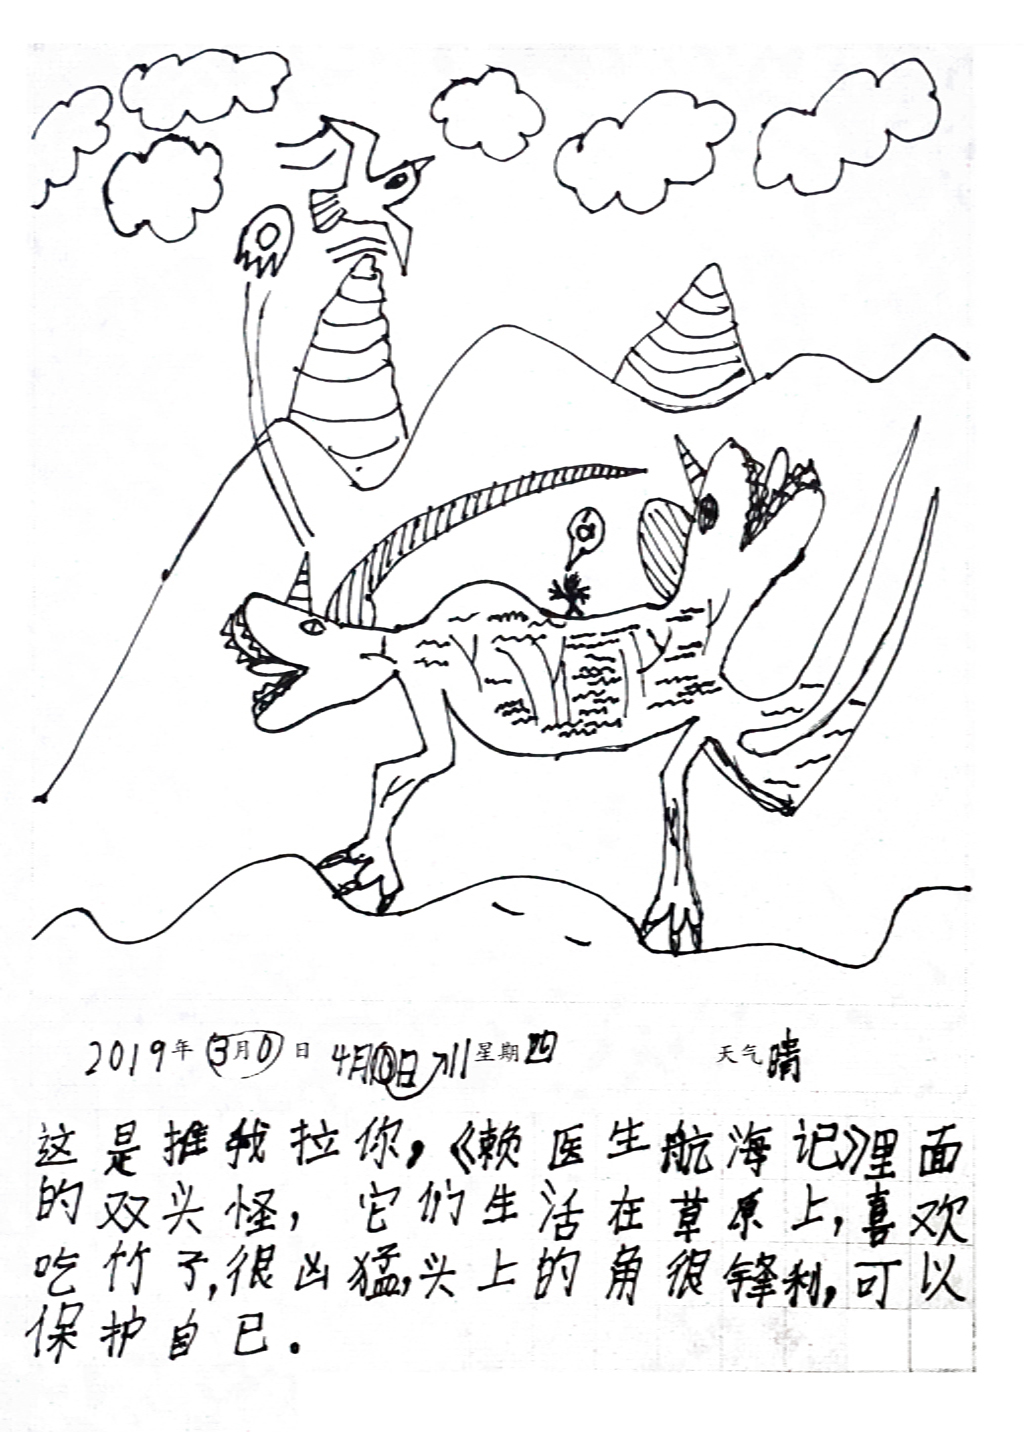 2019年3月0日 4月10日 11 星期四 天气晴
这是推我拉你，《赖医生航海记》里面
的双头怪，它们生活在草原上，喜欢
吃竹子，很凶猛，头上的角很锋利，可以
保护自已。